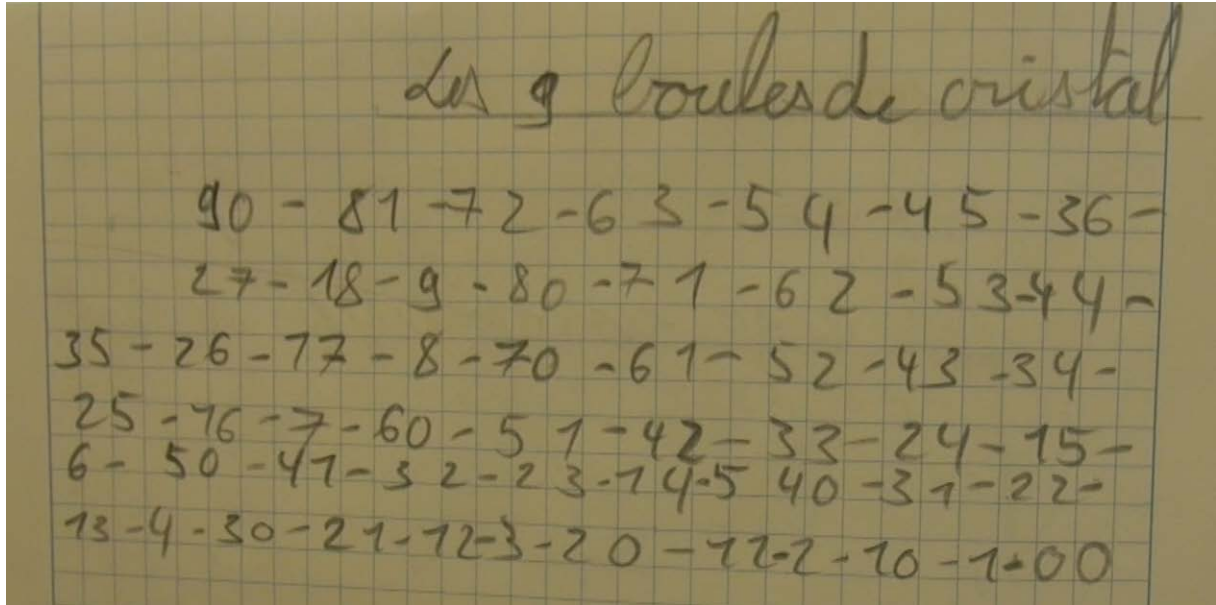 Les 9 boules de cristal
90 - 81 - 72 - 63 - 54 - 45 - 36 -
27 - 18 - 9 - 80 - 71 - 62 - 53 - 44 -
35 - 26 - 17 - 8 - 70 - 61 - 52 - 43 - 34 -
25 - 16 - 7 - 60 - 51 - 42 - 33 - 24 - 15 -
6 - 50 - 41 - 32 - 23 - 14 - 5 40 - 31 - 22 -
13 - 4 - 30 - 21 - 12 - 3 - 20 - 11 - 2 - 10 - 1 - 00